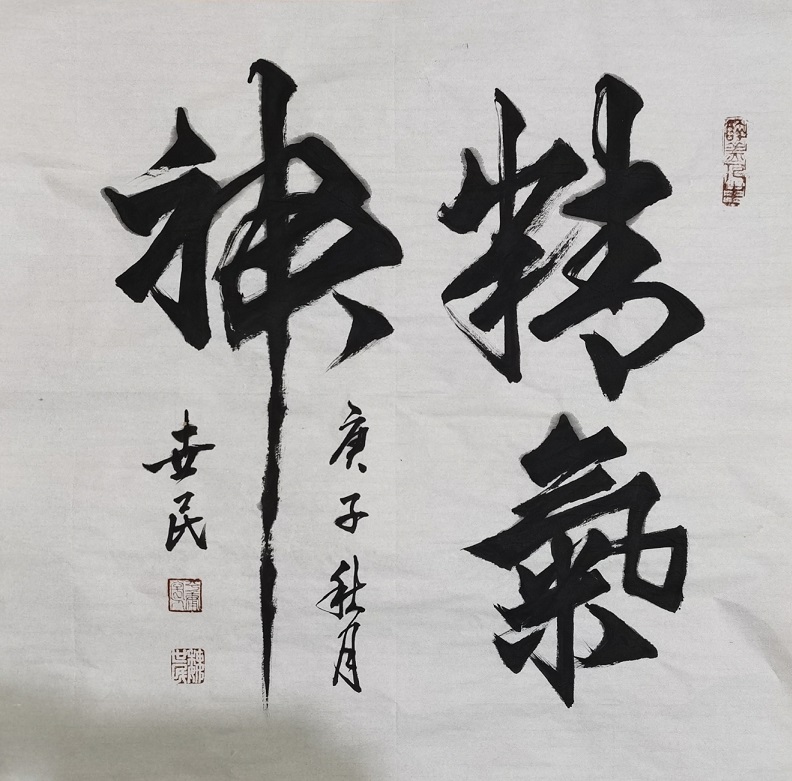 精氣
神
庚子秋月
世民